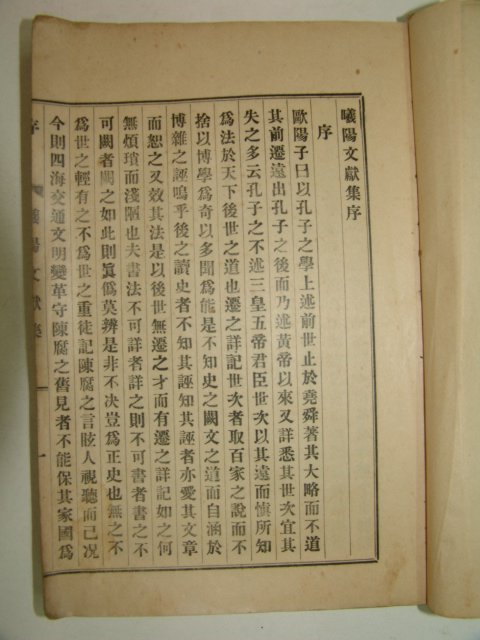 曦陽文獻集序
序
歐陽子曰以孔子之學上述前世止於堯舜著其大略而不道
其前遷遠出孔子之後而乃述黃帝以來又詳悉其世次宜其
失之多云孔子之不述三皇五帝君臣世次以其遠而愼所知
爲法於天下後世之道也遷之詳記世次者取百家之說而不
捨以博學爲奇以多聞爲能是不知史之闕文之道而自涵於
博雜之誣嗚乎後之讀史者不知其誣知其誣者亦愛其文章
而恕之又效其法是以後世無遷之才而有遷之詳記如之何
無煩瑣而淺陋也夫書法不可詳者詳之則不可書者書之不
可闕者闕之如此則眞僞莫辨是非不决豈爲正史也無之不
爲世之輕有之不爲世之重徒記陳腐之言眩人視聽而已况
今則四海交通文明變革守陳腐之舊見者不能保其家國爲
序 陽文獻集 一